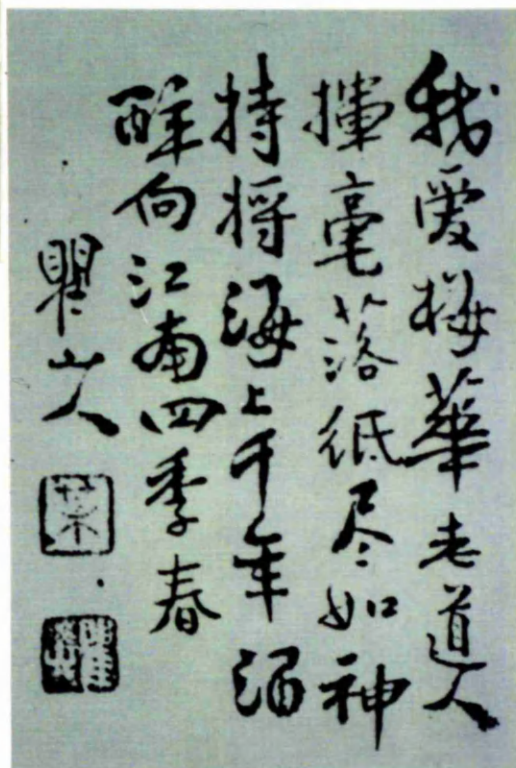 我愛梅華老道人
揮毫落紙尽如神
持将海上千年酒
醉向江南四季春
瞿山人